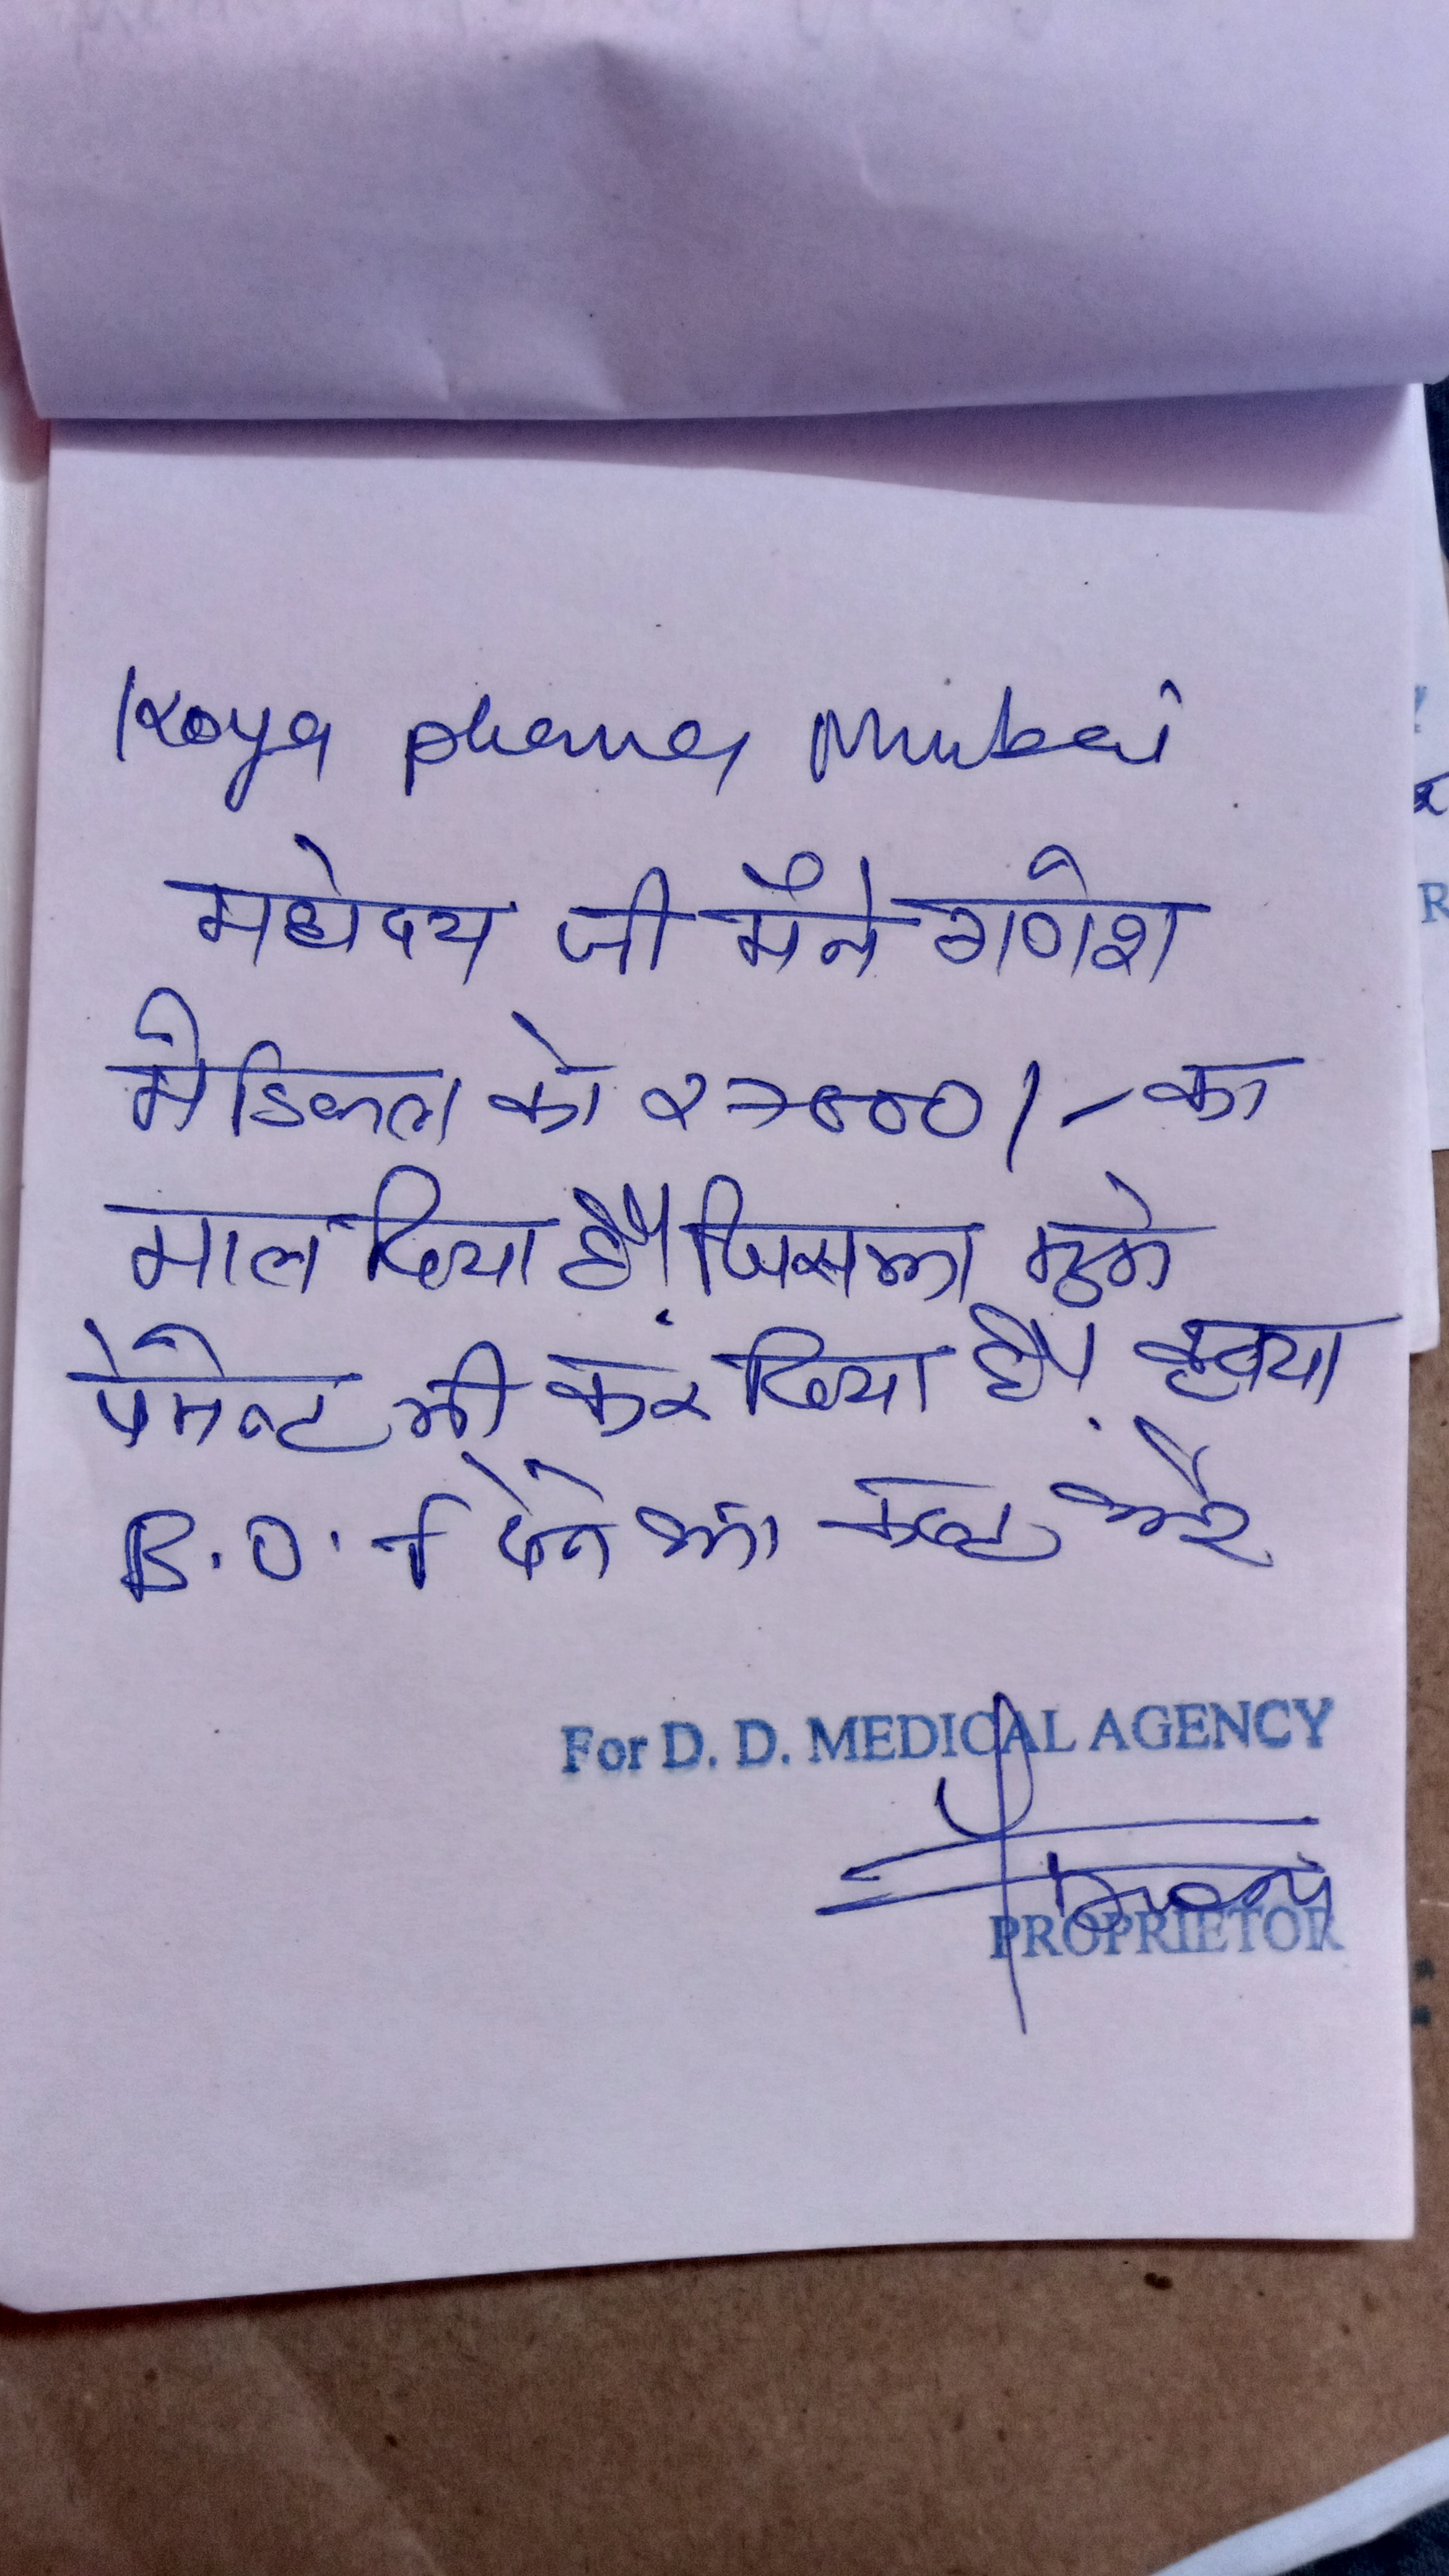 Koya pharma Mumbai
महोदय जी मैने गणेश
मेडिकल को का
माल दिया है। जिसका मुझे
पेमेन्ट भी कर दिया है। कृपया
B.O. र्न देने का कष्ट करे
For D. D. MEDICAL AGENCY
PROPRIETOR